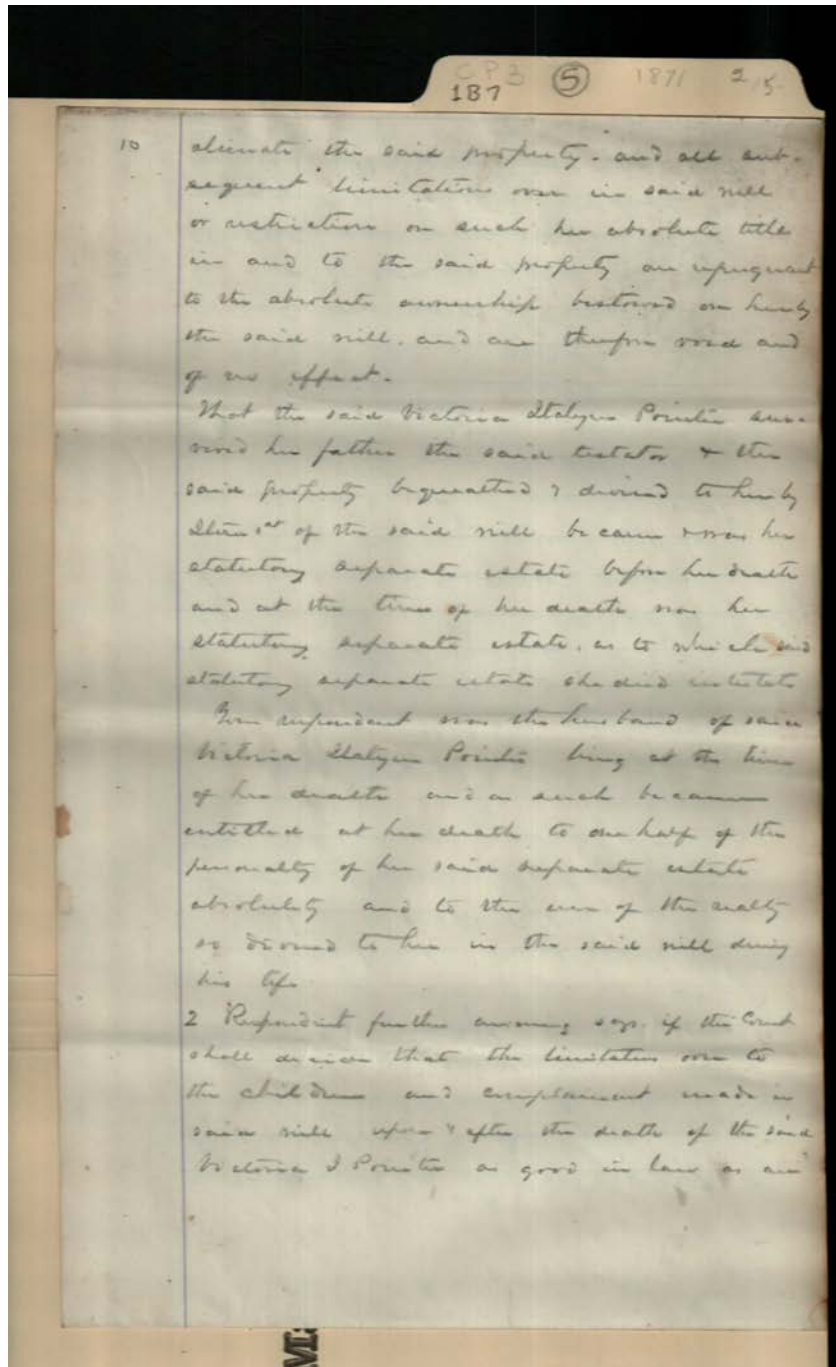 CP3 5 1871 2/5
1B7
10
alienate the said property. and all sub-
sequent limitations over in said will
or restriction on such her absolute title
in and to the said property are repugnant
to the absolute ownership bestowed on her by
the said will. and are therefore void and
of no effect.
That the said Victoria Italyn Pointer sur-
vived her father the said testator & the
said property bequeathed & devised to her by
Item 1st of the said will became & was her
statutory separate estate before her death
and at the time of her death was her
statutory separate estate, as to which said
statutory separate estate she died intestate
Your respondent was the husband of said
Victoria Italyn Pointer living at the time
of her death and as such became
entitled at her death to one half of the
personalty of her said separate estate
absolutely and to the use of the realty
so devised to her in the said will during
his life
2 Respondent further answering says. if the Court
shall decide that the limitation over to
the children and complainant made in
said will upon & after the death of the said
Victoria I Pointer is good in law as